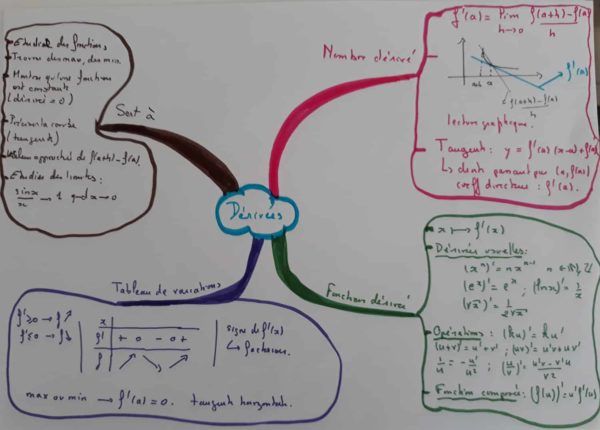 Dérivées
Sert à
- Etudier des fonctions,
- Trouver des max, des min.
- Montrer qu'une fonction
est constante
(dérivée = 0)
la courbe
(tangente)
approchée de f(a+h) - f(a).
- Etudier des limites:
sin x / x → 1 qand x → 0
Nombre dérivé
f'(a) = lim h→0 f(a+h) - f(a) / h
a+h a
f'(a)
f(a+h) - f(a) / h
lecture graphique.
Tangente : y = f'(a) (x-a) + f(a)
↳ droite passant par (a, f(a))
coeff directeur : f'(a).
Fonction dérivée
x ↦ f'(x)
Dérivées usuelles:
(xⁿ)' = n xⁿ⁻¹
(eˣ)' = eˣ ; (ln x)' = 1/x
(√x)' = 1/2√x
Opérations : (ku)' = ku'
(u+v)' = u' + v' ; (uv)' = u'v + uv'
1/u = - u'/u² ; (u/v)' = u'v - v'u / v²
Fonction composée: (f(u))' = u' f'(u)
Tableau de variations
f' ≥ 0 → f ↗
f' ≤ 0 → f ↘
x
f' + 0 - 0 +
f ↗ ↘ ↗
signe de f'(x)
↳ factoriser.
max ou min → f'(a) = 0. tangente horizontale.